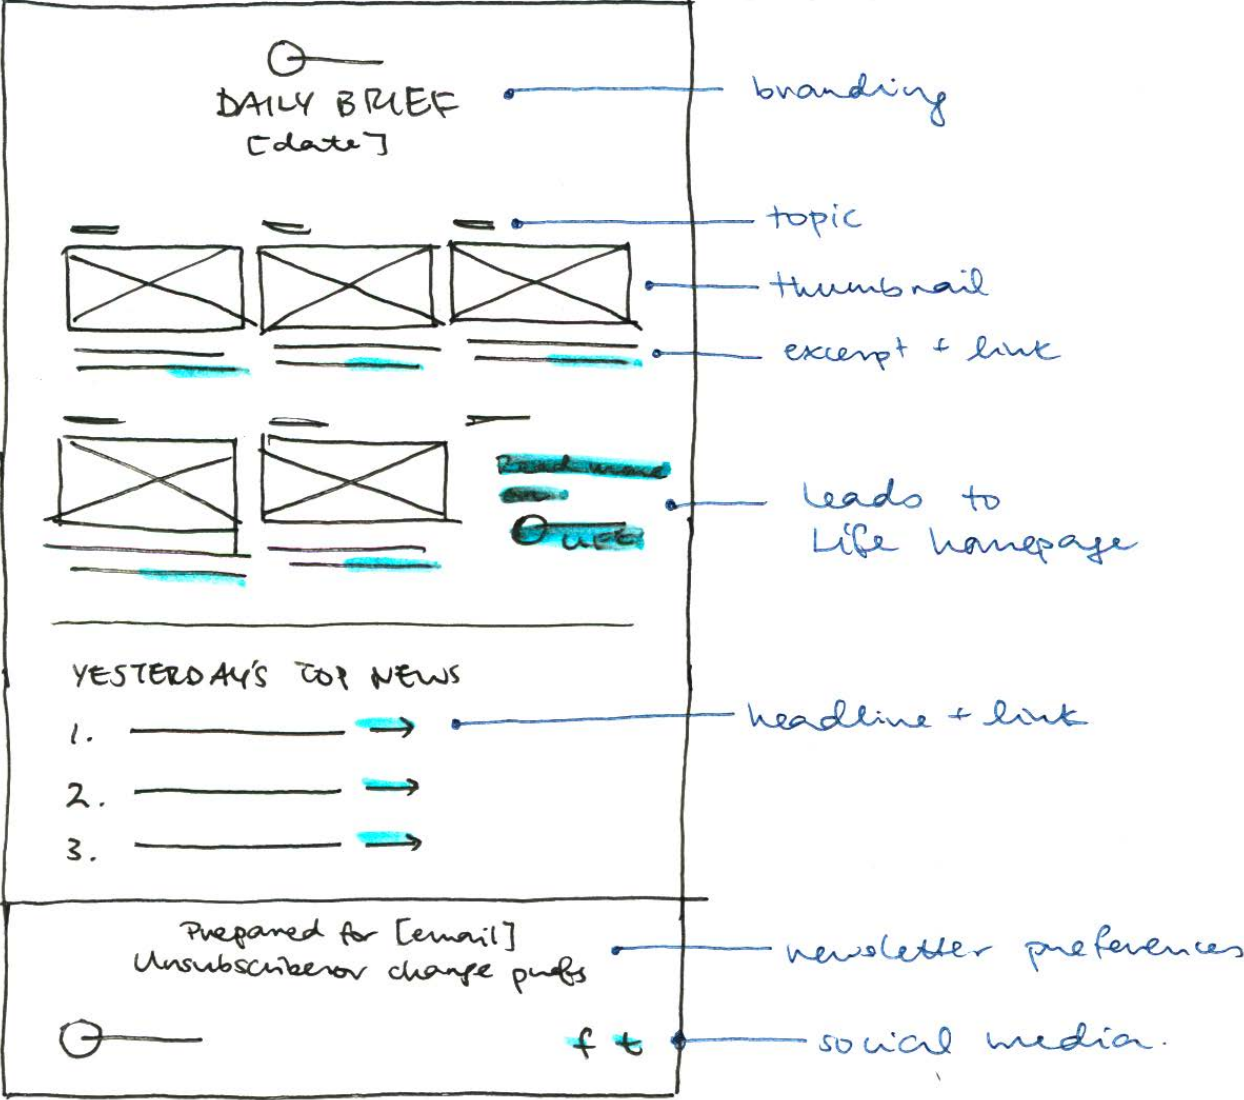 DAILY BRIEF
[date]
branding
topic
thumbnail
excerpt + link
Read more
on
LIFE
leads to
Life homepage
YESTERDAY'S TOP NEWS
1.
2.
3.
headline + link
Prepared for [email]
Unsubscribe or change prefs
newsletter preferences
f t
social media.